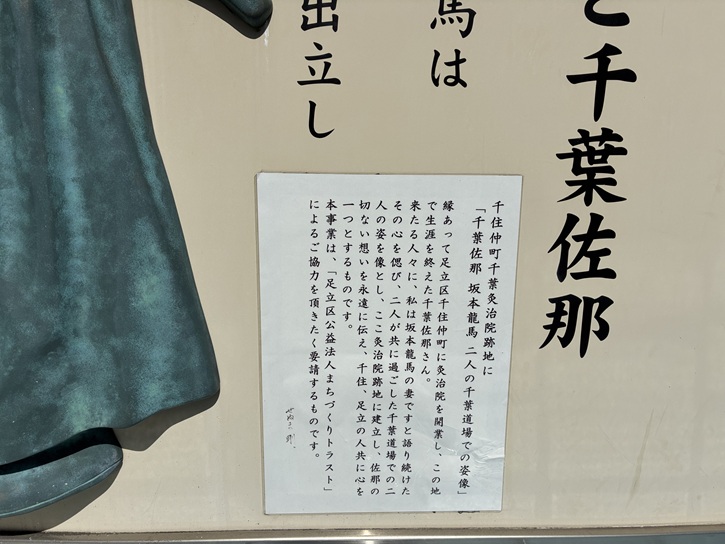 と千葉佐那
馬は
出立し
千住仲町千葉灸治院跡地に
「千葉佐那 坂本龍馬 二人の千葉道場での姿像」
縁あって足立区千住仲町に灸治院を開業し、この地
で生涯を終えた千葉佐那さん。
来たる人々に、私は坂本龍馬の妻ですと語り続けた
その心を偲び、二人が共に過ごした千葉道場での二
人の姿を像とし、ここ灸治院跡地に建立し、佐那の
切ない想いを永遠に伝え、千住、足立の人共に心を
一つとするものです。
本事業は、「足立区公益法人まちづくりトラスト」
によるご協力を頂きたく要請するものです。